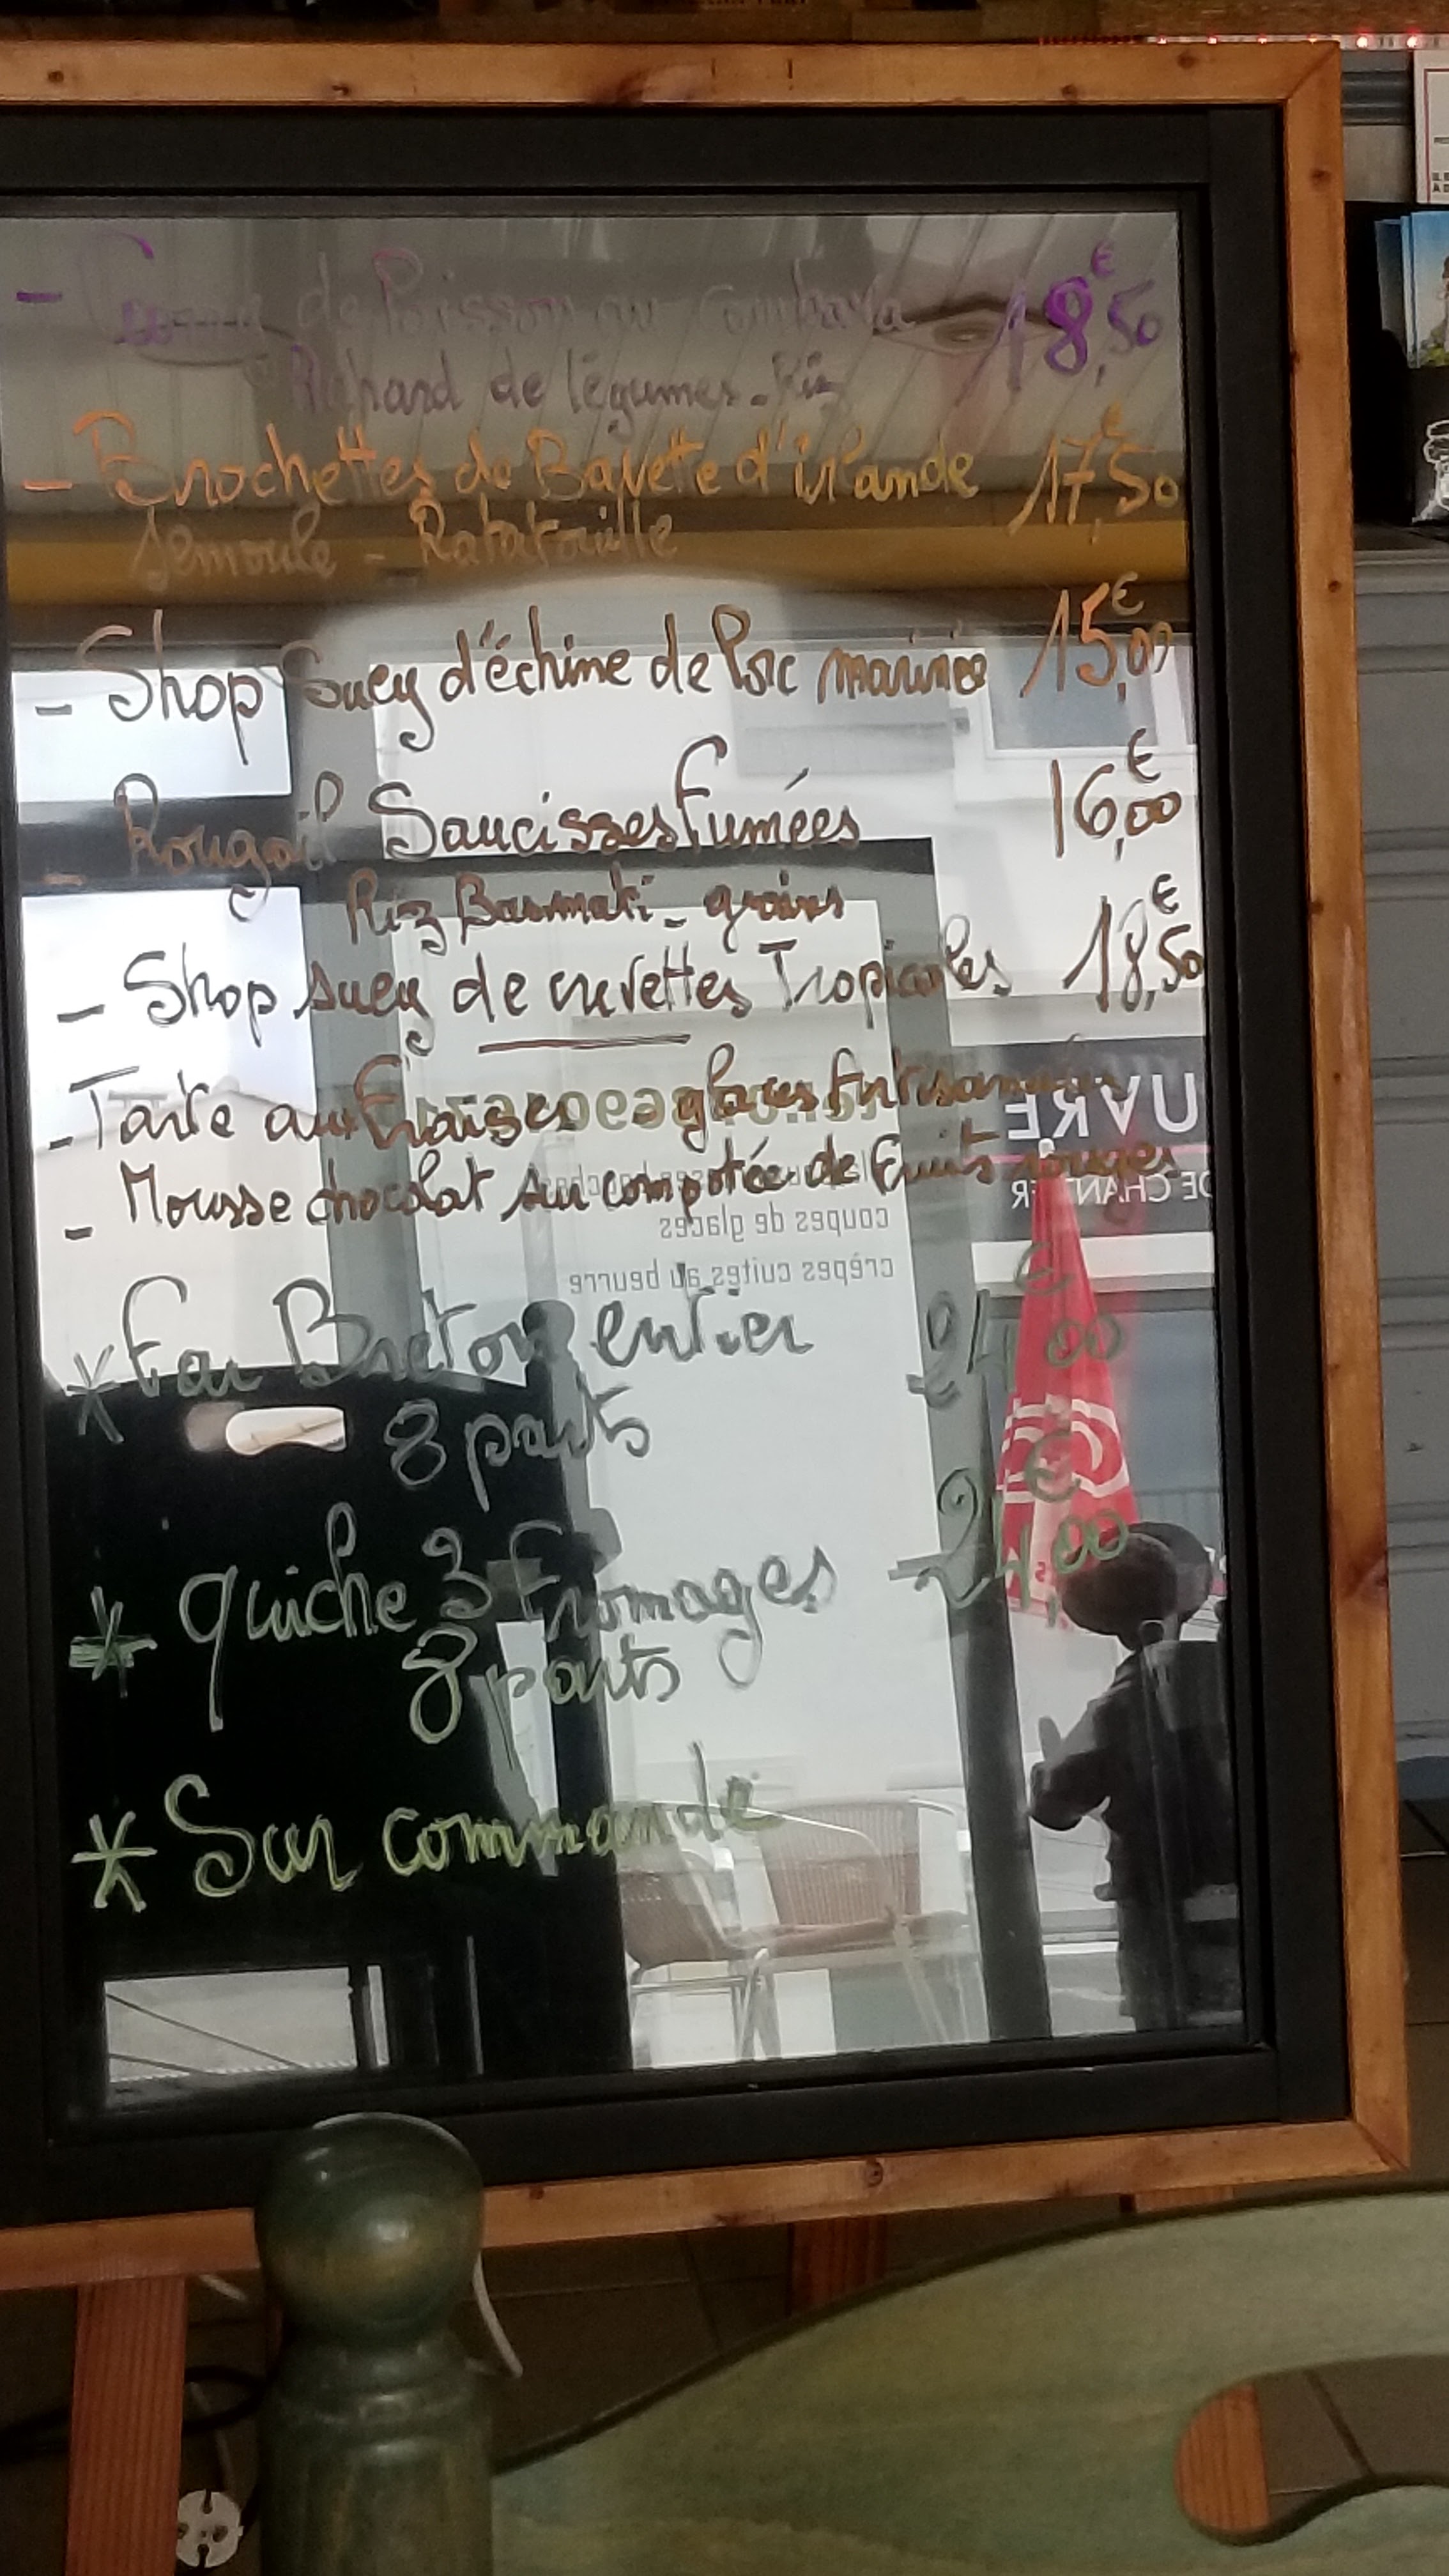 - de Poisson au Combava 18,50€
Achard de légumes - Riz
- Brochettes de Bavette d'irlande 17,50€
Semoule - Ratatouille
- Shop Suey d'échine de Porc marinée 15,00€
- Rougail Saucisses fumées 16,00€
Riz Basmati - grains
- Shop suey de crevettes Tropicales 18,50€
- Tarte aux fraises - glaces Artisanales
- Mousse chocolat sur compotée de fruits rouges
* Far Breton entier 24,00€
8 parts
* quiche 3 Fromages 24,00€
8 parts
* Sur commande
UVRE
DE CHANT ER
coupes de glaces
crêpes cuites au beurre